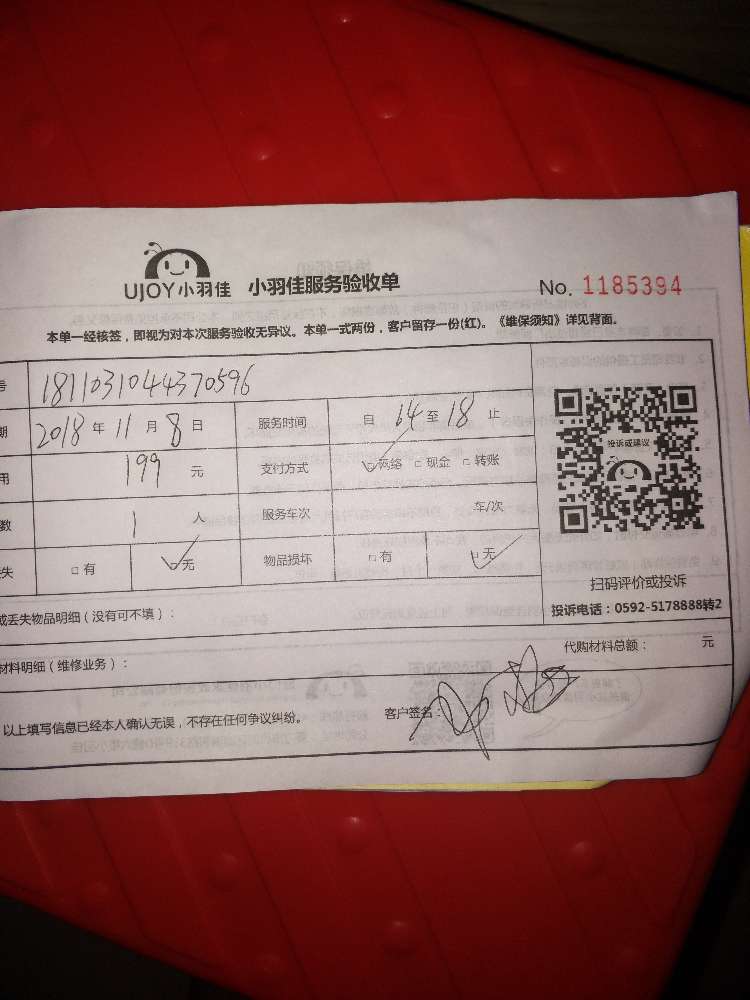 UJOY小羽佳 小羽佳服务验收单 No. 1185394
本单一经核签，即视为对本次服务验收无异议。本单一式两份，客户留存一份(红)。《维保须知》详见背面。
号 1811031044370596
期 2018 年 11 月 8 日 服务时间 自 14 至 18 止
用 199 元 支付方式 ☑网络 □现金 □转账
数 1 人 服务车次 车/次
失 □有 ☑无 物品损坏 □有 ☑无
投诉或建议
扫码评价或投诉
投诉电话：0592-5178888转2
或丢失物品明细（没有可不填）：
材料明细（维修业务）： 代购材料总额： 元
以上填写信息已经本人确认无误，不存在任何争议纠纷。 客户签名：